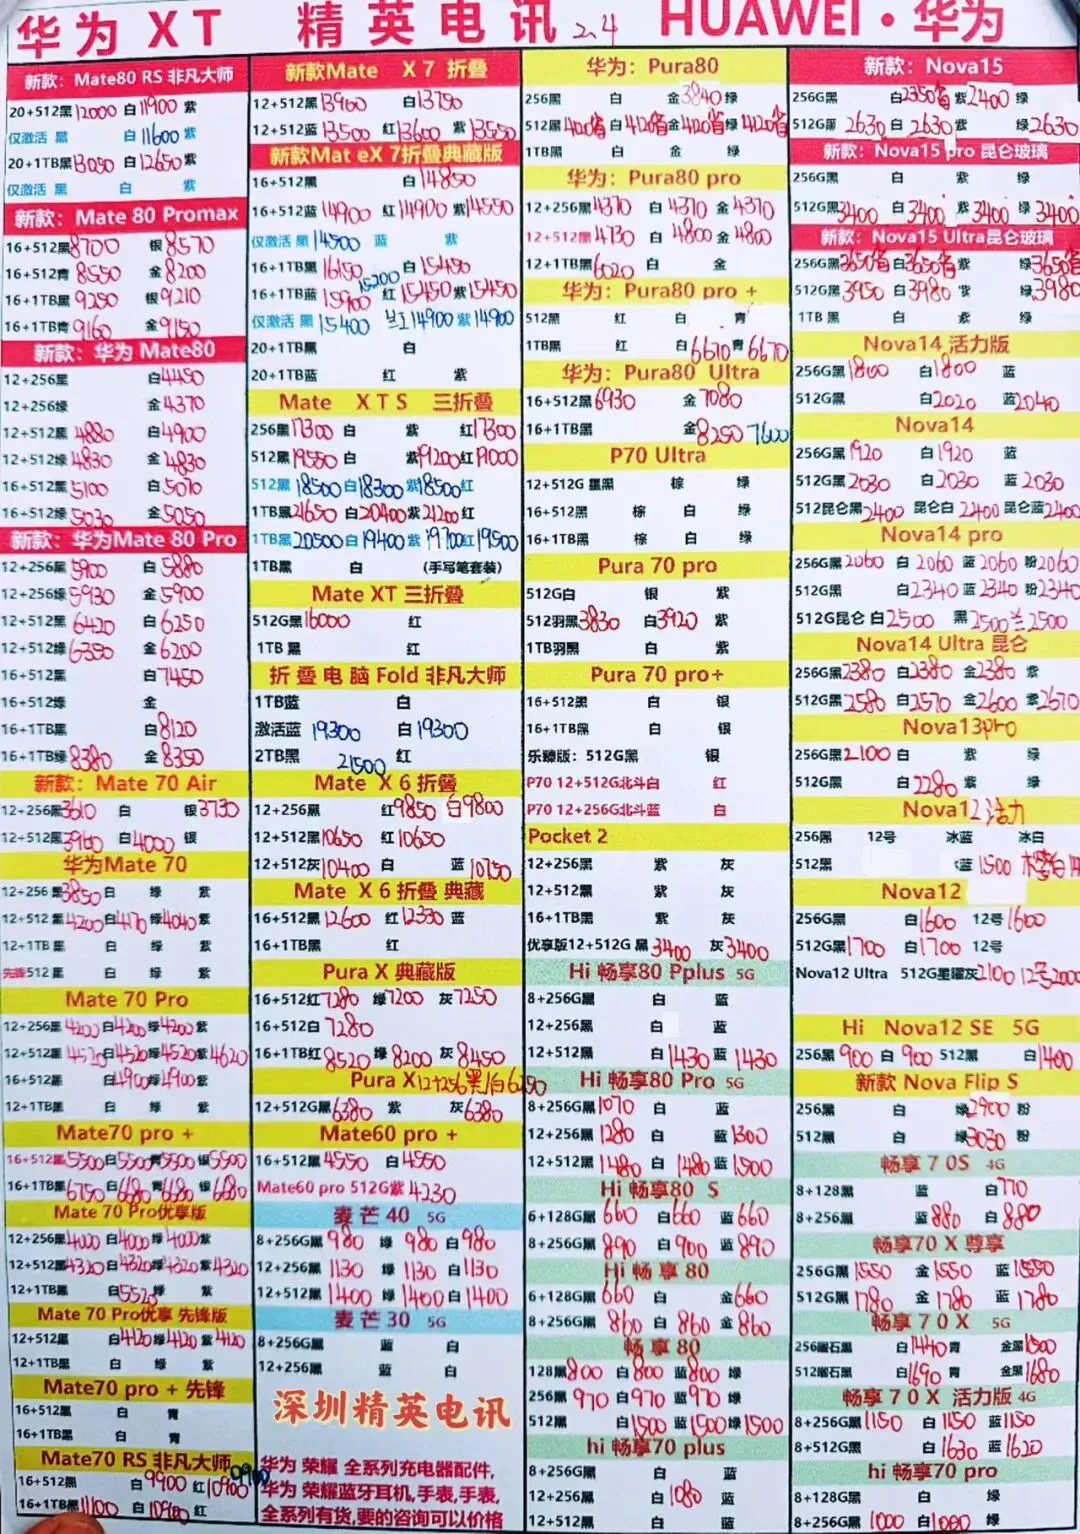 华为XT 精英电讯 2.4 HUAWEI·华为
新款：Mate80 RS 非凡大师
20+512黑12000 白11900 紫
仅激活 黑 白11600 紫
20+1TB黑13050 白12650 紫
仅激活 黑 白 紫
新款：Mate 80 Promax
16+512黑8700 银8570
16+512青8550 金8200
16+1TB黑9250 银9210
16+1TB青9160 金9150
新款：华为 Mate80
12+256黑 白4450
12+256绿 金4370
12+512黑4880 白4900
12+512绿4830 金4830
16+512黑5100 白5070
16+512绿5030 金5050
新款：华为Mate 80 Pro
12+256黑5900 白5880
12+256绿5930 金5900
12+512黑6420 白6250
12+512绿6350 金6200
16+512黑 白7450
16+512绿 金
16+1TB黑 白8120
16+1TB绿8380 金8350
新款：Mate 70 Air
12+256黑3610 白 银3730
12+512黑3960 白4000 银
华为Mate 70
12+256黑3850 白 绿 紫
12+512黑4200 白4170 绿4040 紫
12+1TB黑 白 绿 紫
先锋512黑 白 绿 紫
Mate 70 Pro
12+256黑4200 白4200 绿4200 紫
12+512黑4520 白4520 绿4520 紫4620
16+512黑 白4900 绿4900 紫
12+1TB黑 白 绿 紫
Mate70 pro +
16+512黑5500 白5500 青5500 银5500
16+1TB黑6750 白6680 青6680 银6680
Mate 70 Pro优享版
12+256黑4000 白4000 绿4000 紫
12+512黑4320 白4320 绿4320 紫4320
12+1TB黑 白5520 绿 紫
Mate 70 Pro优享 先锋版
12+512黑 白4120 绿4120 紫4120
12+1TB黑 白 绿 紫
Mate70 pro + 先锋
16+512黑 白 青
16+1TB黑 白 青
Mate70 RS 非凡大师
16+512黑 白9900 红10900 9900
16+1TB黑11100 白10900 红
新款Mate X 7 折叠
12+512黑13900 白13750
12+512蓝13500 红13600 紫13550
新款Mat eX 7折叠典藏版
16+512黑 白14850
16+512蓝14900 红14900 紫14550
仅激活 黑14500 蓝 紫
16+1TB黑16150 15200 白15450
16+1TB蓝15900 红15450 紫15450
仅激活 黑15400 兰红14900 紫14900
20+1TB黑 白
20+1TB蓝 红 紫
Mate X T S 三折叠
256黑17300 白 紫 红17300
512黑19550 白 紫19200 红19000
512黑18500 白18300 紫18500 红
1TB黑21650 白20400 紫21200 红
1TB黑20500 白19400 紫19700 红19500
1TB黑 白 (手写笔套装)
Mate XT 三折叠
512G黑16000 红
1TB黑 红
折叠电脑Fold 非凡大师
1TB蓝 白
激活蓝 19300 白19300
2TB黑 21500 红
Mate X 6 折叠
12+256黑 红9850 白9800
12+512黑10650 红10650
12+512灰10400 白 蓝10750
Mate X 6 折叠 典藏
16+512黑12600 红12350 蓝
16+1TB黑 红
Pura X 典藏版
16+512红7280 绿7200 灰7250
16+512白7280
16+1TB红8520 绿8200 灰8450
Pura X 12+256黑/白6250
12+512G黑6380 紫 灰6380
Mate60 pro +
16+512黑4550 白4550
Mate60 pro 512G紫4230
麦芒 40 5G
8+256G黑980 绿980 白980
12+256黑1130 绿1130 白1130
12+512黑1400 绿1400 白1400
麦芒 30 5G
8+256G黑 蓝 白
12+256黑 蓝 白
深圳精英电讯
华为 荣耀 全系列充电器配件,
华为 荣耀蓝牙耳机,手表,手表,
全系列有货,要的咨询可以价格
华为：Pura80
256黑 白 金3840 绿
512黑4120省 白4120省 金4120省 绿4120省
1TB黑 白 金 绿
华为：Pura80 pro
12+256黑4370 白4370 金4370
12+512黑4730 白4800 金4800
12+1TB黑6020 白 金
华为：Pura80 pro +
512黑 红 白 青
1TB黑 红 白6670 青6670
华为：Pura80 Ultra
16+512黑6930 金7080
16+1TB黑 金8250 7600
P70 Ultra
12+512G 墨黑 棕 绿
16+512黑 棕 白 绿
16+1TB黑 棕 白 绿
Pura 70 pro
512G白 银 紫
512羽黑3830 白3920 紫
1TB羽黑 白 紫
Pura 70 pro+
16+512黑 白 银
16+1TB黑 白 银
乐臻版：512G黑 银
P70 12+512G北斗白 红
P70 12+256G北斗蓝 白
Pocket 2
12+256黑 紫 灰
12+512黑 紫 灰
16+1TB黑 紫 灰
优享版12+512G 黑3400 灰3400
Hi 畅享80 Pplus 5G
8+256G黑 白 蓝
12+256黑 白 蓝
12+512黑 白1430 蓝1430
Hi 畅享80 Pro 5G
8+256G黑1070 白 蓝
12+256黑1280 白 蓝1300
12+512黑1480 白1480 蓝1500
Hi 畅享80 S
6+128G黑660 白660 蓝660
8+256G黑890 白900 蓝890
Hi 畅享 80
6+128G黑660 白 金660
8+256G黑860 白860 金860
畅享 80
128黑800 白800 蓝800 绿
256黑970 白970 蓝970 绿
512黑 白1500 蓝1500 绿1500
hi 畅享70 plus
8+256G黑 白 蓝
12+256黑 白1080 蓝
12+512黑 白 蓝
新款：Nova15
256G黑 白2350省 紫2400 绿
512G黑2630 白2630 紫 绿2630
新款：Nova15 pro 昆仑玻璃
256G黑 白 紫 绿
512G黑3400 白3400 紫3400 绿3400
新款：Nova15 Ultra昆仑玻璃
256G黑3650省 白3650省 紫 绿3650省
512G黑3950 白3980 紫 绿3980
1TB黑 白 紫 绿
Nova14 活力版
256G黑1800 白1800 蓝
512G黑 白2020 蓝2040
Nova14
256G黑1920 白1920 蓝
512G黑2030 白2030 蓝2030
512昆仑黑2400 昆仑白2400 昆仑蓝2400
Nova14 pro
256G黑2060 白2060 蓝2060 粉2060
512G黑 白2340 蓝2340 粉2340
512G昆仑 白2500 黑2500 兰2500
Nova14 Ultra 昆仑
256G黑2380 白2380 金2380 紫
512G黑2580 白2570 金2600 紫2670
Nova13pro
256G黑2100 白 紫 绿
512G黑 白2280 紫 绿
Nova12活力
256黑 12号 冰蓝 冰白
512黑 蓝1500
Nova12
256G黑 白1600 12号1600
512G黑1700 白1700 12号
Nova12 Ultra 512G星曜灰2100 12号2000
Hi Nova12 SE 5G
256黑900 白900 512黑 白1400
新款 Nova Flip S
256黑 白 绿2900 粉
512黑 白 绿3030 粉
畅享 7 0S 4G
8+128黑 蓝 白770
8+256黑 蓝880 白880
畅享70 X 尊享
256G黑1550 金1550 蓝1550
512G黑1780 金1780 蓝1780
畅享 7 0 X 5G
256曜石黑 白1440 青 金黑1500
512曜石黑 白1690 青 金黑1680
畅享 7 0 X 活力版 4G
8+256G黑1150 白1150 蓝1150
8+512G黑 白1630 蓝1620
hi 畅享70 pro
8+128G黑 白 绿
8+256G黑1000 白1000 绿